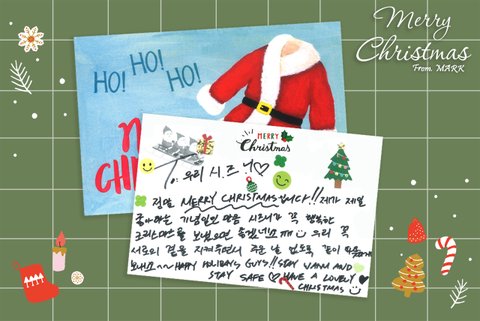 Merry
Christmas
From. MARK
HO! HO! HO!
MERRY
Christmas
To. 우리 시즈니♡
정말 MERRY CHRISTMAS입니다!! 제가 제일
좋아하는 기념일인 만큼 시즈니가 꼭 행복한
크리스마스를 보냈으면 좋겠네요 ㅎㅎ 우리 꼭
서로의 곁을 지켜주면서 추운 날 없도록 같이 따뜻하게
보내요~~ HAPPY HOLIDAYS GUYS!! STAY WARM AND
STAY SAFE ♡ HAVE A LOVELY
CHRISTMAS